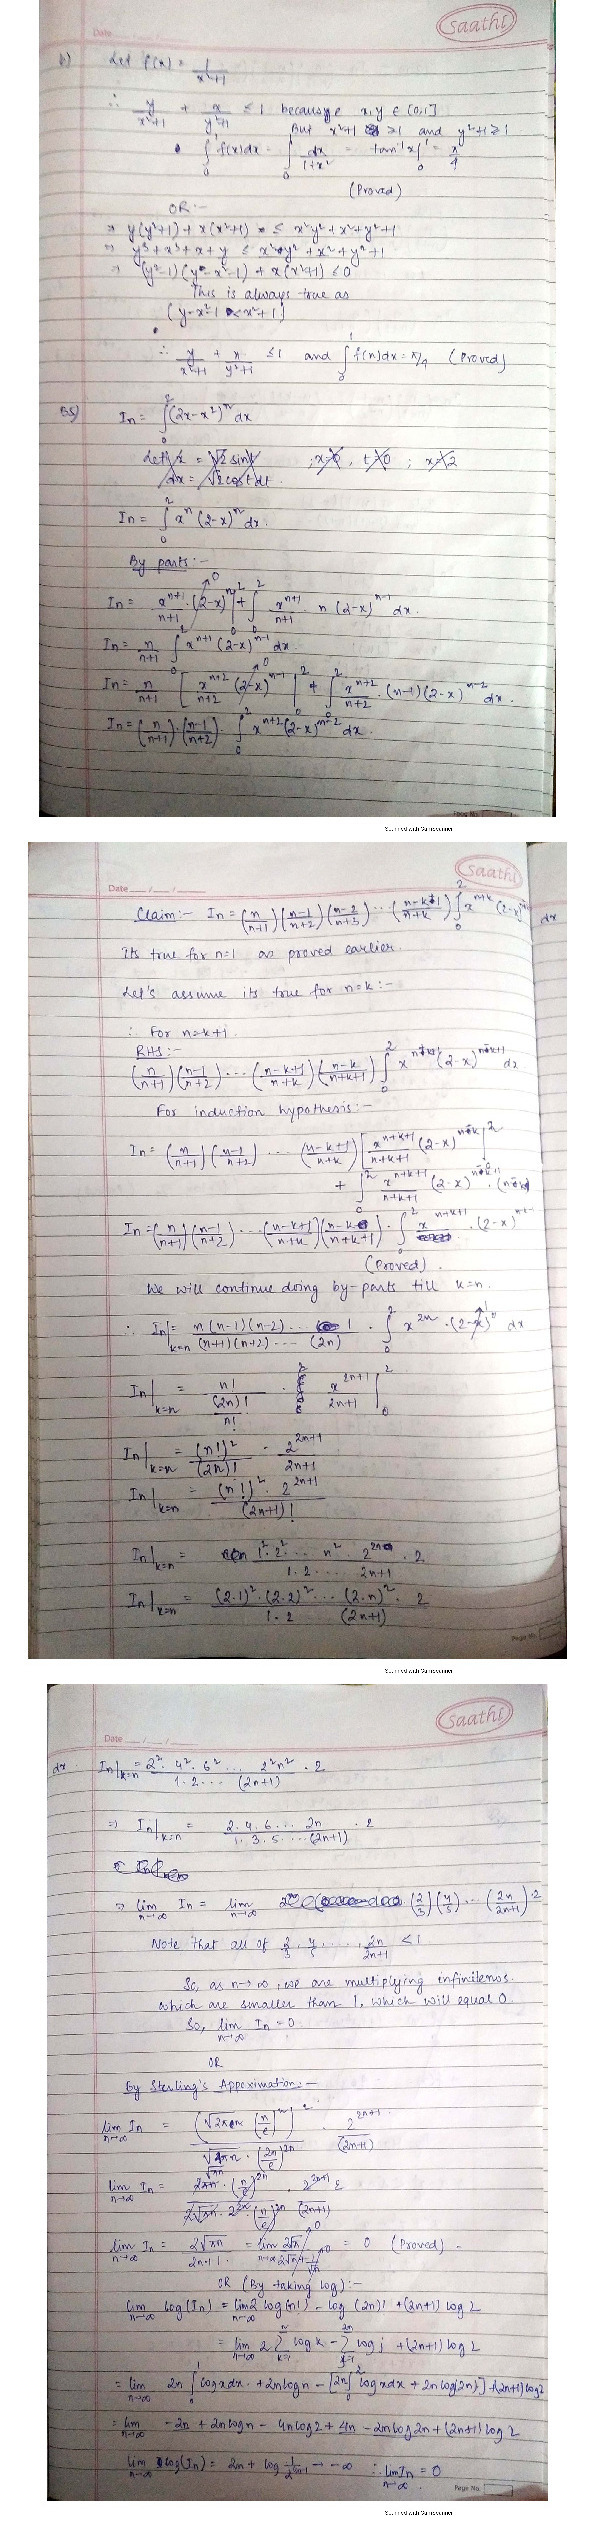 Saathi
Date
b) Let f(x) = 1/(x²+1)
∴ y/(x²+1) + x/(y²+1) ≤ 1 because x,y ∈ [0,1]
But x²+1 ≥1 and y²+1 ≥1
∫₀¹ f(x)dx = ∫₀¹ dx/(1+x²) = tan⁻¹x|₀¹ = π/4
(Proved)
OR:-
⇒ y(y²+1) + x(x²+1) ≤ x²y² + x²+y²+1
⇒ y³+x³+x+y ≤ x²y² + x² + y²+1
⇒ (y²-1)(y-x²-1) + x(x²+1) ≤0
This is always true as
(y-x²-1 < x²+1)
∴ y/(x²+1) + x/(y²+1) ≤1 and ∫₀¹ f(x)dx = π/4 (Proved)
In = ∫₀² (2x-x²)ⁿ dx
Let x = √2 sint ; x=0, t=0 ; x=√2
dx = √2 cost dt.
In = ∫₀² xⁿ (2-x)ⁿ dx.
By parts:-
In = xⁿ⁺¹/(n+1) · (2-x)ⁿ|₀² + ∫₀² xⁿ⁺¹/(n+1) · n (2-x)ⁿ⁻¹ dx.
In = n/(n+1) ∫₀² xⁿ⁺¹ (2-x)ⁿ⁻¹ dx.
In = n/(n+1) [xⁿ⁺²/(n+2) (2-x)ⁿ⁻¹|₀² + ∫₀² xⁿ⁺²/(n+2) · (n-1)(2-x)ⁿ⁻² dx.
In = (n/(n+1)) · ((n-1)/(n+2)) · ∫₀² xⁿ⁺² (2-x)ⁿ⁻² dx.
Page No.
Scanned with CamScanner
Saathi
Date
Claim:- In = (n/(n+1)) ((n-1)/(n+2)) ((n-2)/(n+3)) ... ((n-k+1)/(n+k)) ∫₀² xⁿ⁺ᵏ (2-x) dx
Its true for n=1 as proved earlier.
Let's assume its true for n=k:-
∴ For n=k+1
RHS:-
(n/(n+1)) ((n-1)/(n+2)) ... ((n-k+1)/(n+k)) ((n-k)/(n+k+1)) ∫₀² x (2-x) dx
For induction hypothesis:-
In = (n/(n+1)) ((n-1)/(n+2)) ... ((n-k+1)/(n+k)) [xⁿ⁺ᵏ⁺¹/(n+k+1) (2-x)ⁿ⁻ᵏ|₀²
+ ∫₀² xⁿ⁺ᵏ⁺¹/(n+k+1) (2-x) · (n-k)
In = (n/(n+1)) ((n-1)/(n+2)) ... ((n-k+1)/(n+k)) ((n-k)/(n+k+1)) · ∫₀² xⁿ⁺ᵏ⁺¹ · (2-x)
(Proved).
We will continue doing by-parts till k=n.
∴ In|k=n = n(n-1)(n-2)... 1/(n+1)(n+2)... (2n) · ∫₀² x²ⁿ · (2-x)⁰ dx
In|k=n = n!/((2n)!/n!) · x²ⁿ⁺¹/(2n+1)|₀²
In|k=n = (n!)²/(2n)! · 2²ⁿ⁺¹/(2n+1)
In|k=n = (n!)² · 2²ⁿ⁺¹/(2n+1)!
In|k=n = 1²·2²... n² · 2²ⁿ · 2/1.2 ... 2n+1
In|k=n = (2.1)²·(2.2)² ... (2.n)² · 2/1.2 (2n+1)
Page No.
Scanned with CamScanner
Saathi
Date
dx In|k=n = 2²· 4²· 6² ... 2²n² · 2/1.2... (2n+1)
⇒ In|k=n = 2.4.6... 2n/1.3.5....(2n+1) · 2
⇒ lim n→∞ In = lim n→∞ (2/3)(4/5)... (2n/(2n+1))·2
Note that all of 2/3, 4/5, ....., 2n/(2n+1) < 1
So, as n→∞, we are multiplying infinite nos.
which are smaller than 1, which will equal 0.
So, lim n→∞ In = 0
OR
By Sterling's Appoximation:-
lim n→∞ In = (√2πn (n/e)ⁿ)²/√4πn · (2n/e)²ⁿ · 2²ⁿ⁺¹/(2n+1)
lim n→∞ In = 2πn · (n/e)²ⁿ · 2²ⁿ · 2/2√πn · 2²ⁿ · (n/e)²ⁿ (2n+1)
lim n→∞ In = 2√πn/2n+1. = lim n→∞ 2√π/2√n+1/√n = 0 (Proved).
OR (By taking log):-
lim n→∞ log(In) = lim n→∞ 2 log(n!) - log (2n)! + (2n+1) log 2
= lim n→∞ 2 Σ log k - Σ log j + (2n+1) log 2
= lim n→∞ 2n ∫₀¹ log x dx + 2n log n - [2n ∫₀² log x dx + 2n log(2n)] + (2n+1) log 2
= lim n→∞ -2n + 2n log n - 4n log 2 + 4n - 2n log 2n + (2n+1) log 2
lim n→∞ log(In) = 2n + log → -∞ ∴ lim n→∞ In = 0
Page No.
Scanned with CamScanner